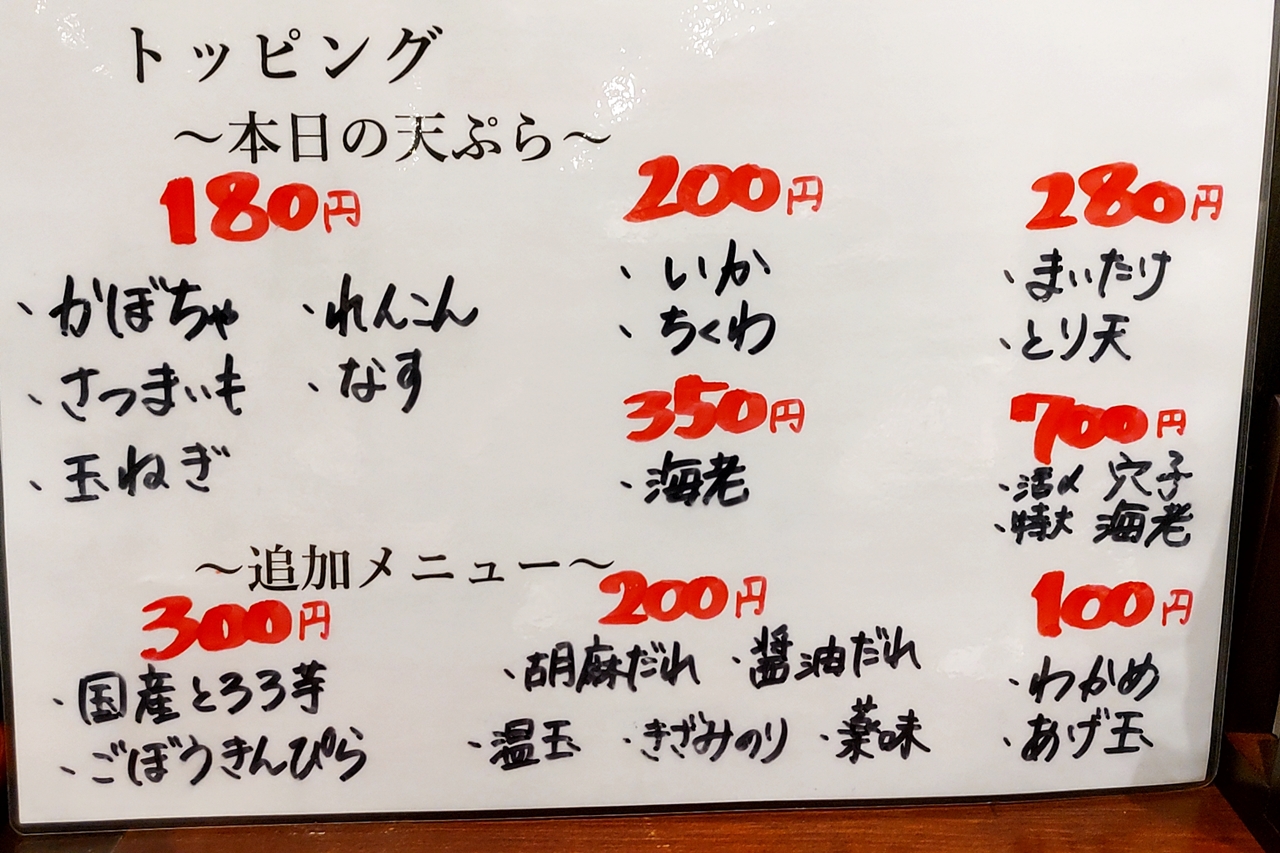 トッピング
〜本日の天ぷら〜
180円
、かぼちゃ 、れんこん
、さつまいも 、なす
、玉ねぎ
200円
、いか
、ちくわ
280円
、まいたけ
、とり天
350円
、海老
700円
、活〆 穴子
、特大 海老
〜追加メニュー〜
300円
、国産とろろ芋
、ごぼうきんぴら
200円
、胡麻だれ 、醤油だれ
、温玉 、きざみのり 、薬味
100円
、わかめ
、あげ玉